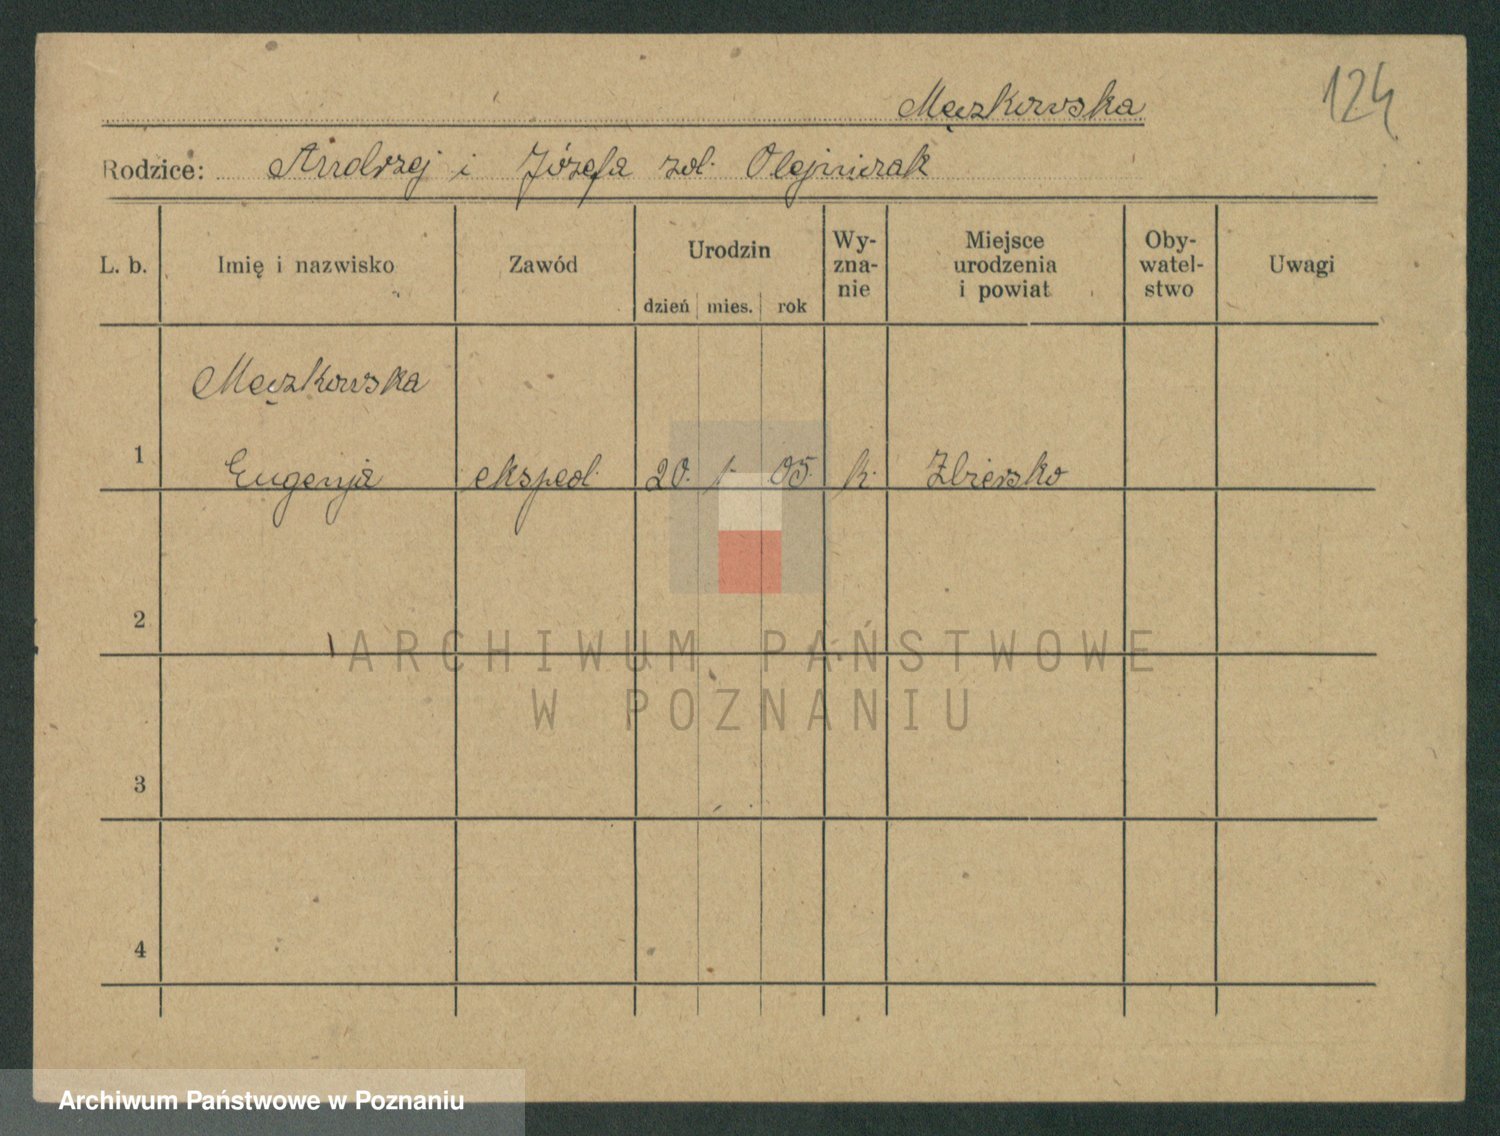 Męczkowska
124
Rodzice: Andrzej i Józefa zd. Olejniczak
L. b. Imię i nazwisko Zawód Urodzin dzień mies. rok Wyznanie Miejsce urodzenia i powiat Obywatelstwo Uwagi
Męczkowska
1 Eugenja eksped. 20. 1. 05. k. Zbiersko
2
3
4
ARCHIWUM PAŃSTWOWE
W POZNANIU
Archiwum Państwowe w Poznaniu